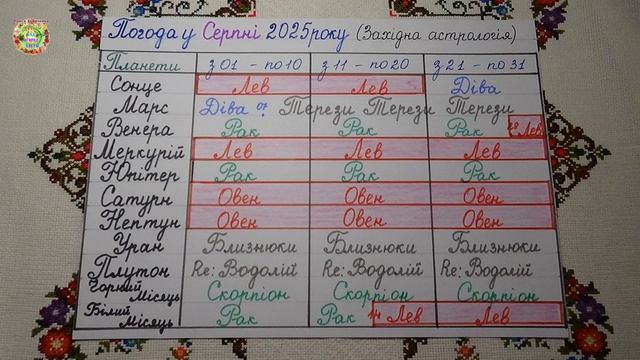 Погода у Серпні 2025 року (Західна астрологія)
Планети з 01 - по 10 з 11 - по 20 з 21 - по 31
Сонце Лев Лев Діва
Марс Діва 07 Терези Терези Терези
Венера Рак Рак Рак Лев
Меркурій Лев Лев Лев
Юпітер Рак Рак Рак
Сатурн Овен Овен Овен
Нептун Овен Овен Овен
Уран Близнюки Близнюки Близнюки
Плутон Re: Водолій Re: Водолій Re: Водолій
Чорний Місяць Скорпіон Скорпіон Скорпіон
Білий Місяць Рак Рак 14 Лев Лев